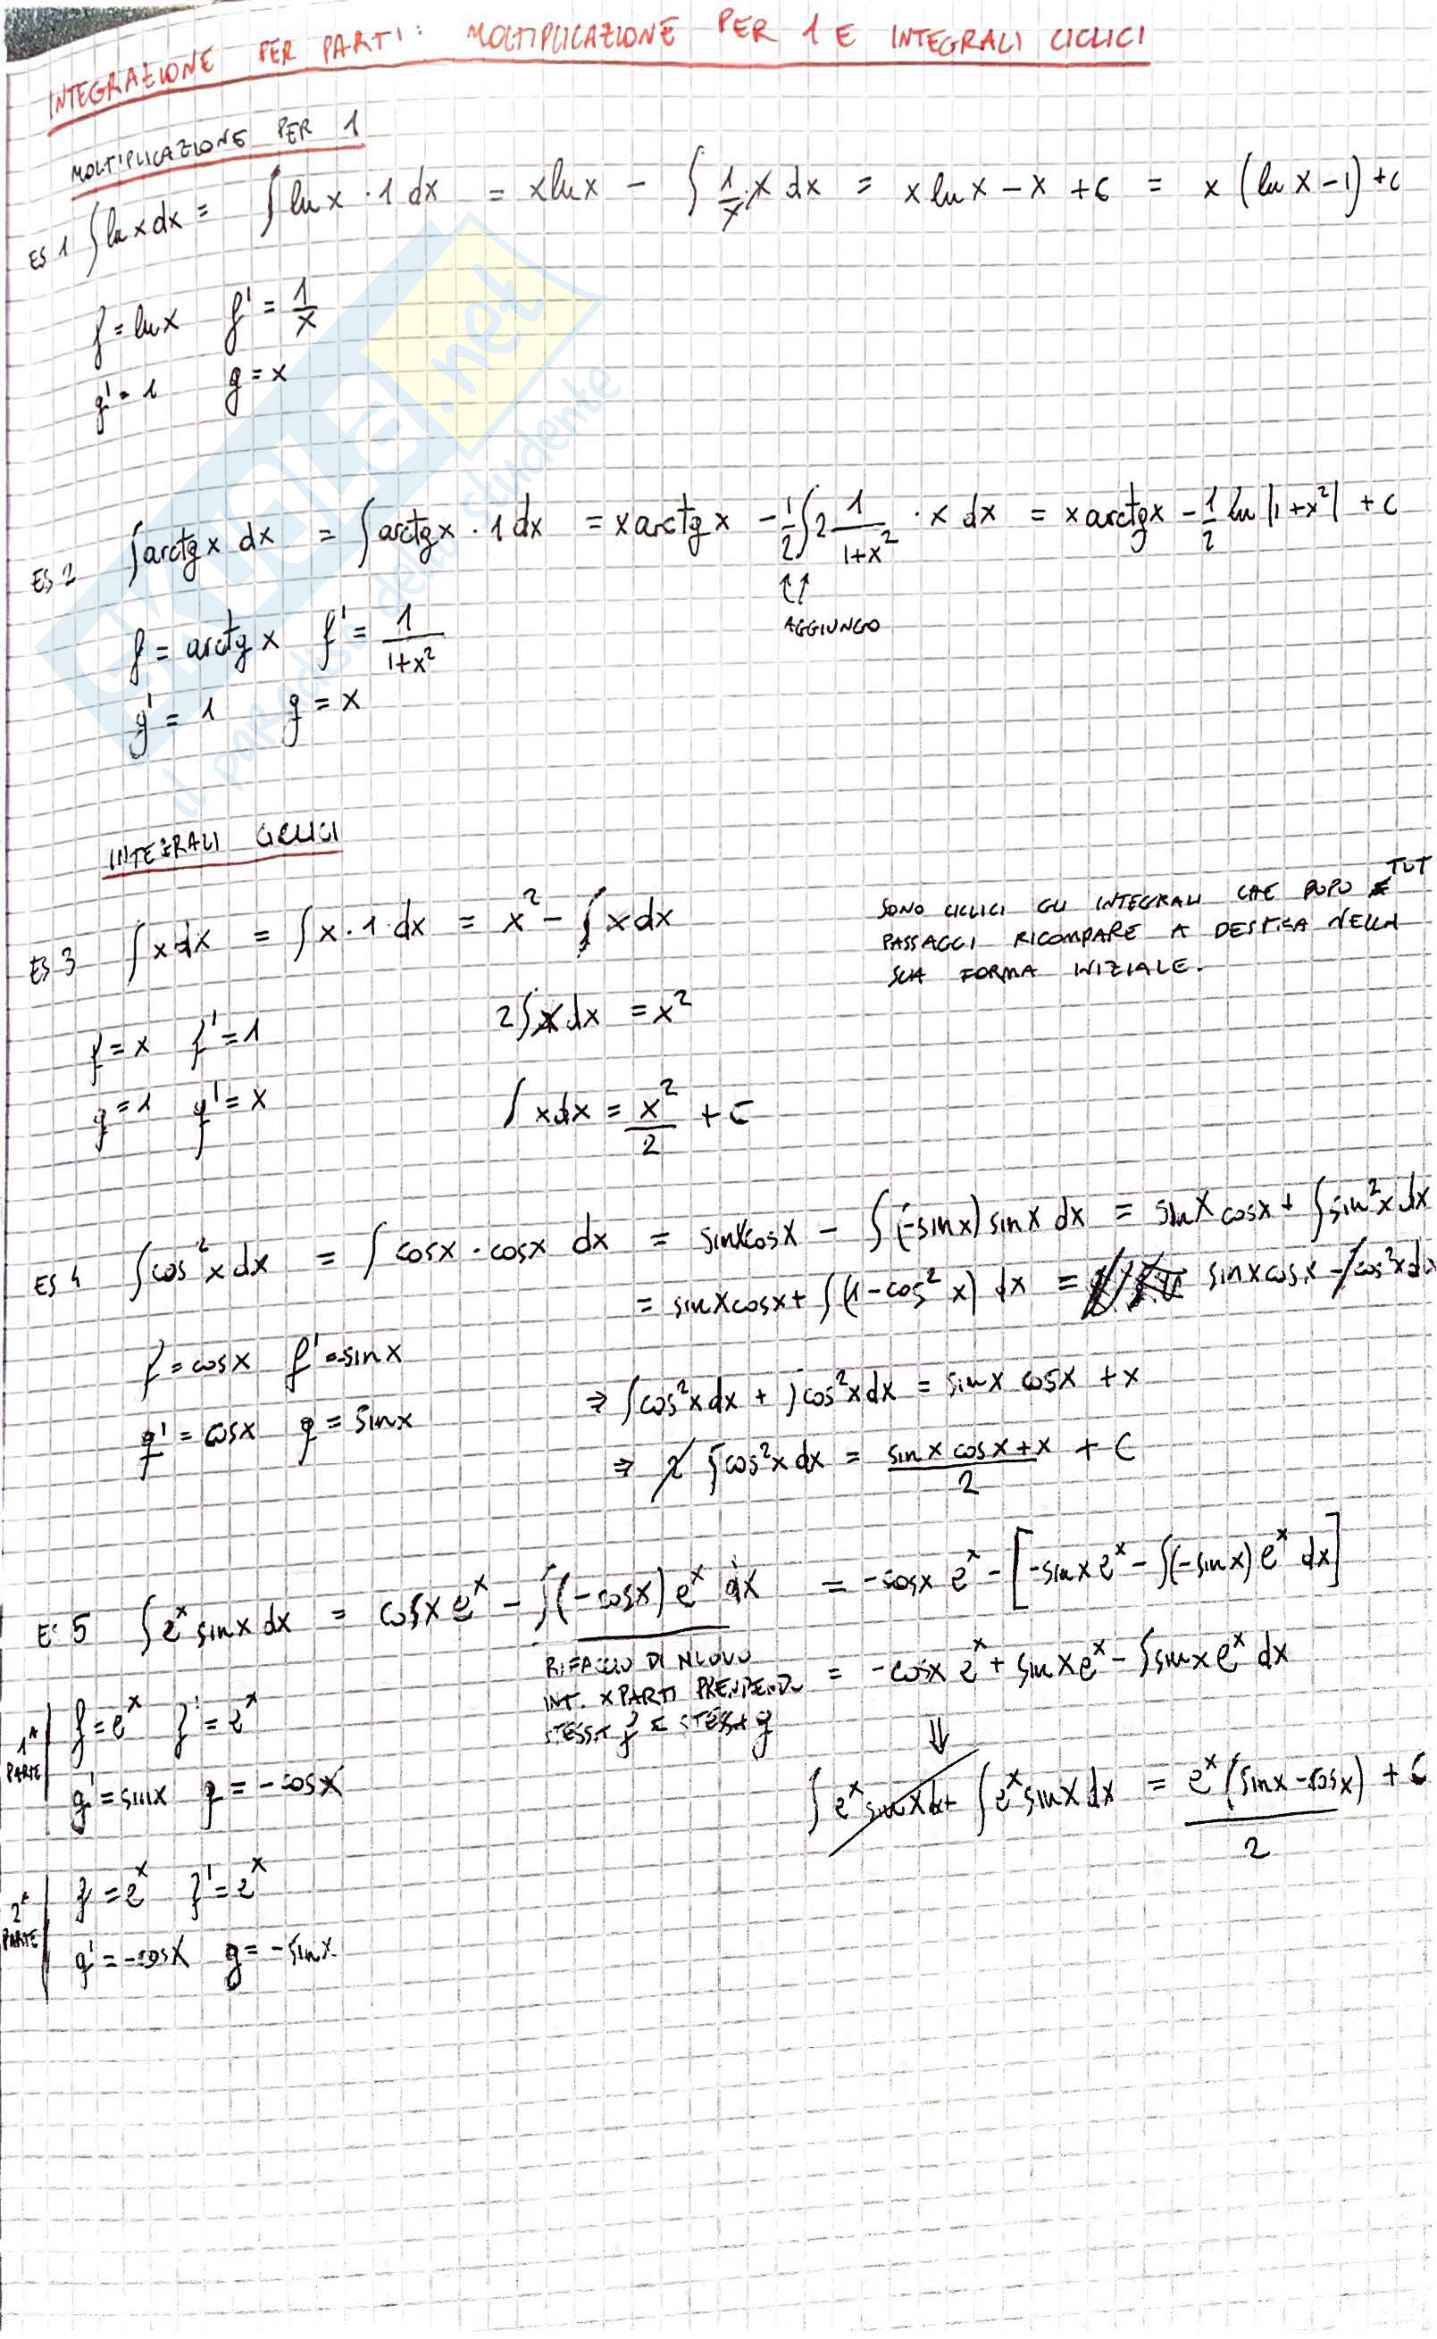 INTEGRAZIONE PER PARTI: MOLTIPLICAZIONE PER 1 E INTEGRALI CICLICI
MOLTIPLICAZIONE PER 1
ES 1 ∫ln x dx = ∫ln x · 1 dx = x ln x - ∫ 1/x · x dx = x ln x - x + c = x (ln x - 1) + c
f = ln x f' = 1/x
g' = 1 g = x
ES 2 ∫arctg x dx = ∫arctg x · 1 dx = x arctg x - 1/2 ∫ 2 1/(1+x²) · x dx = x arctg x - 1/2 ln |1+x²| + c
AGGIUNGO
f = arctg x f' = 1/(1+x²)
g' = 1 g = x
INTEGRALI CICLICI
ES 3 ∫x dx = ∫x · 1 · dx = x² - ∫x dx
SONO CICLICI GLI INTEGRALI CHE DOPO TUT
PASSAGGI RICOMPARE A DESTRA NELLA
SUA FORMA INIZIALE.
f = x f' = 1
g = 1 g' = x
2∫x dx = x²
∫x dx = x²/2 + c
ES 4 ∫cos² x dx = ∫cos x · cos x dx = sin x cos x - ∫(-sin x) sin x dx = sin x cos x + ∫sin² x dx
= sin x cos x + ∫(1 - cos² x) dx = sin x cos x - ∫cos² x dx
f = cos x f' = -sin x
g' = cos x g = sin x
⇒ ∫cos² x dx + ∫cos² x dx = sin x cos x + x
⇒ 2 ∫cos² x dx = (sin x cos x + x)/2 + C
ES 5 ∫e^x sin x dx = cos x e^x - ∫(-cos x) e^x dx = -cos x e^x - [-sin x e^x - ∫(-sin x) e^x dx]
RIFACCIO DI NUOVO
INT. X PARTI PRENDENDO
STESSA f E STESSA g
= -cos x e^x + sin x e^x - ∫sin x e^x dx
⇓
∫e^x sin x dx + ∫e^x sin x dx = e^x (sin x - cos x)/2 + C
1ª PARTE
f = e^x f' = e^x
g' = sin x g = -cos x
2ª PARTE
f = e^x f' = e^x
g' = -cos x g = -sin x